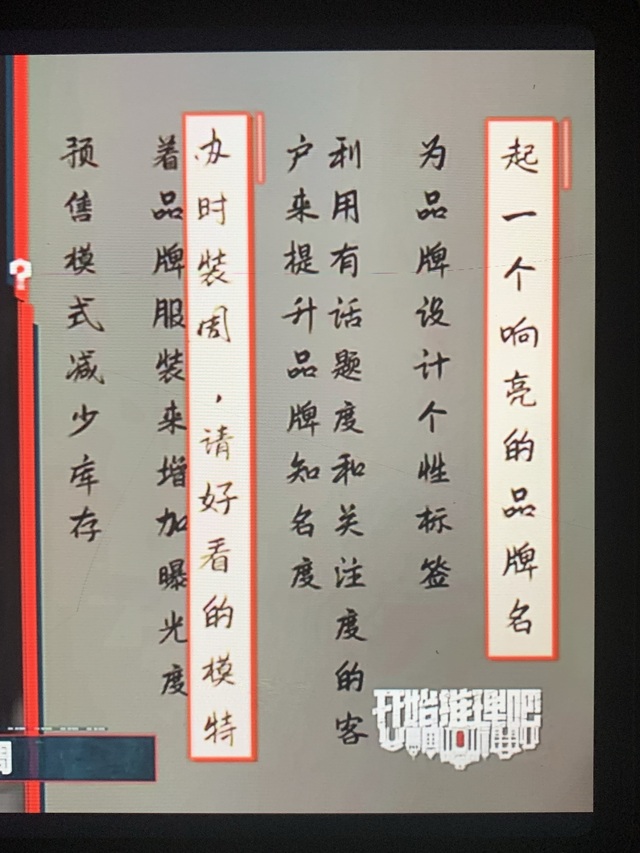 起一个响亮的品牌名
为品牌设计个性标签
利用有话题度和关注度的客
户来提升品牌知名度
办时装周，请好看的模特
着品牌服装来增加曝光度
预售模式减少库存
开始推理吧